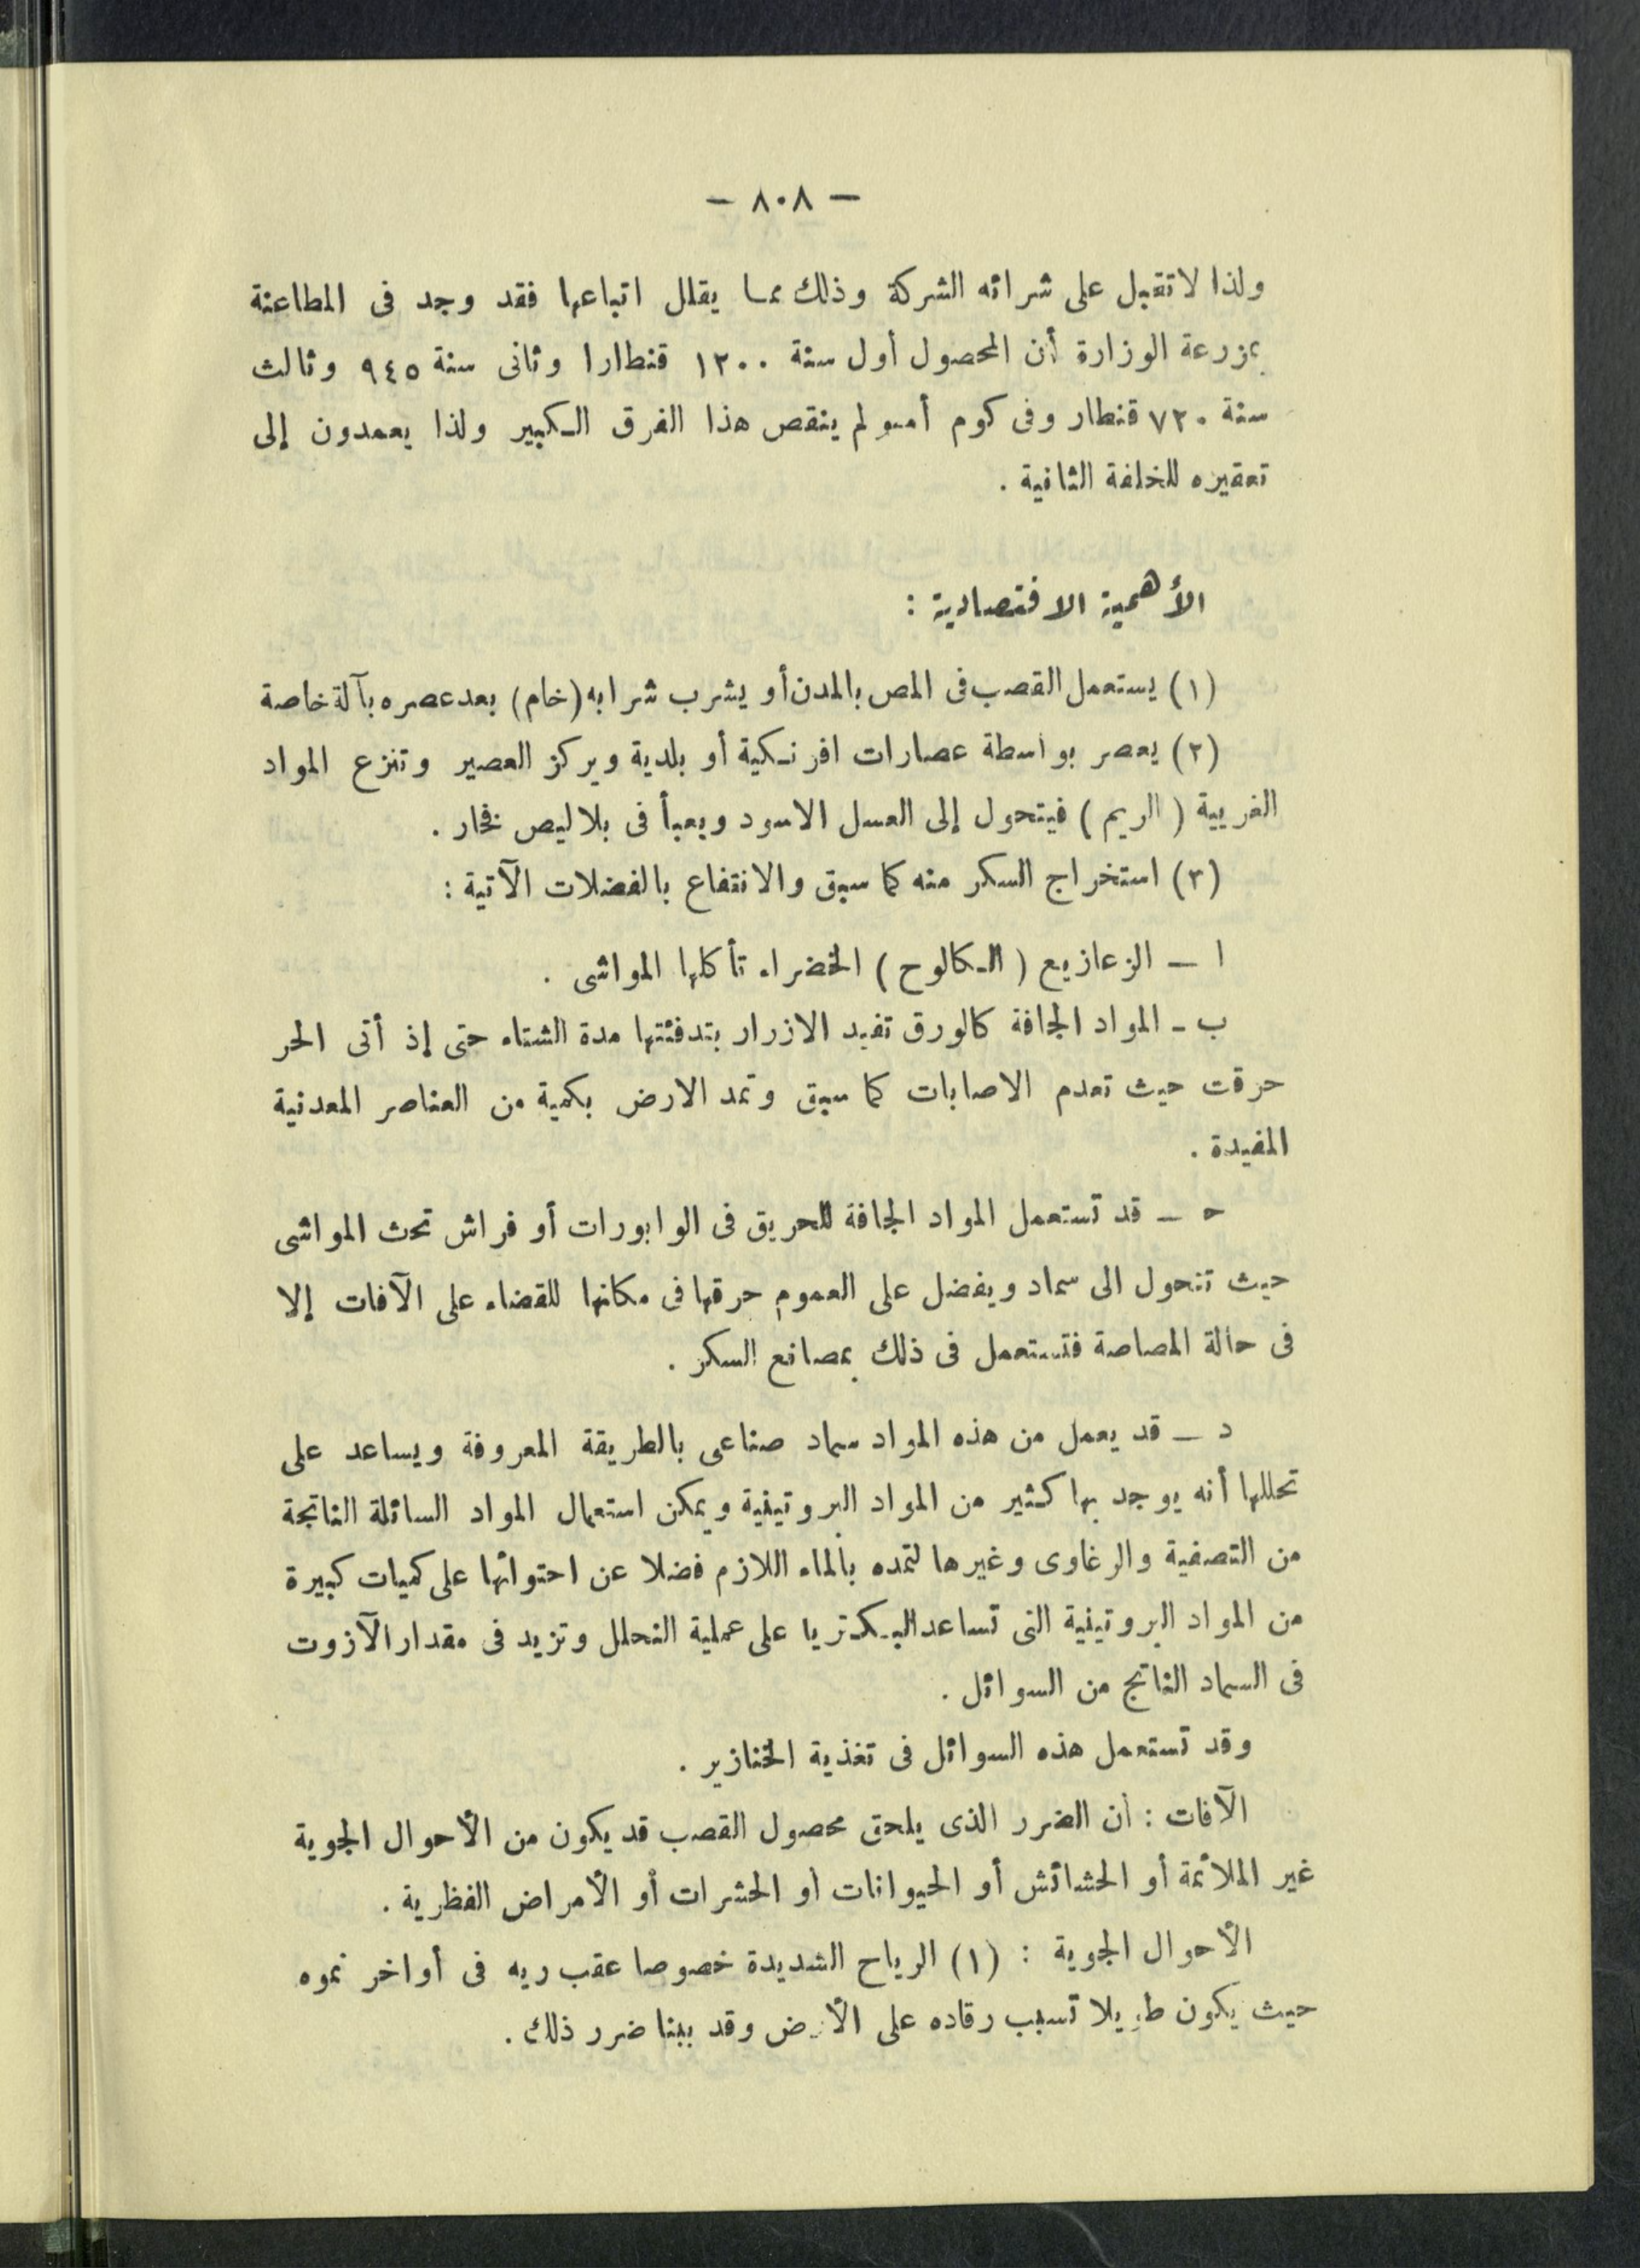 — ٨٠٨ —
ولذا لا تقبل على شرائه الشركة وذلك مما يقلل اتباعها فقد وجد فى المطاعنة
بمزرعة الوزارة أن المحصول أول سنة ١٢٠٠ قنطارا وثانى سنة ٩٤٥ وثالث
سنة ٧٢٠ قنطار وفى كوم أمبو لم ينقص هذا الفرق الكبير ولذا يعمدون إلى
تعقيره للخلفة الثانية .
الأهمية الاقتصادية :
(١) يستعمل القصب فى المص بالمدن أو يشرب شرابه (خام) بعد عصره بآلة خاصة
(٢) يعصر بواسطة عصارات افرنكية أو بلدية ويركز العصير وتنزع المواد
الغريبة ( الريم ) فيتحول إلى العسل الاسود ويعبأ فى بلاليص نخار .
(٣) استخراج السكر منه كما سبق والانتفاع بالفضلات الآتية :
ا — الزعازيع ( الكالوح ) الخضراء تأكلها المواشى .
ب - المواد الجافة كالورق تفيد الازرار بتدفئتها مدة الشتاء حتى إذ أتى الحر
حرقت حيث تعدم الاصابات كما سبق وتمد الارض بكمية من العناصر المعدنية
المفيدة .
حـ — قد تستعمل المواد الجافة للحريق فى الوابورات أو فراش تحت المواشى
حيث تتحول الى سماد ويفضل على العموم حرقها فى مكانها للقضاء على الآفات إلا
فى حالة المصاصة فتستعمل فى ذلك بمصانع السكر .
د — قد يعمل من هذه المواد سماد صناعى بالطريقة المعروفة ويساعد على
تحللها أنه يوجد بها كثير من المواد البروتينية ويمكن استعمال المواد السائلة الناتجة
من التصفية والرغاوى وغيرها لتمده بالماء اللازم فضلا عن احتوائها على كميات كبيرة
من المواد البروتينية التى تساعد البكتريا على عملية التحلل وتزيد فى مقدار الآزوت
فى السماد الناتج من السوائل .
وقد تستعمل هذه السوائل فى تغذية الخنازير .
الآفات : أن الضرر الذى يلحق محصول القصب قد يكون من الأحوال الجوية
غير الملائمة أو الحشائش أو الحيوانات أو الحشرات أو الأمراض الفظرية .
الأحوال الجوية : (١) الرياح الشديدة خصوصا عقب ريه فى أواخر نموه
حيث يكون طويلا تسبب رقاده على الأرض وقد بينا ضرر ذلك .